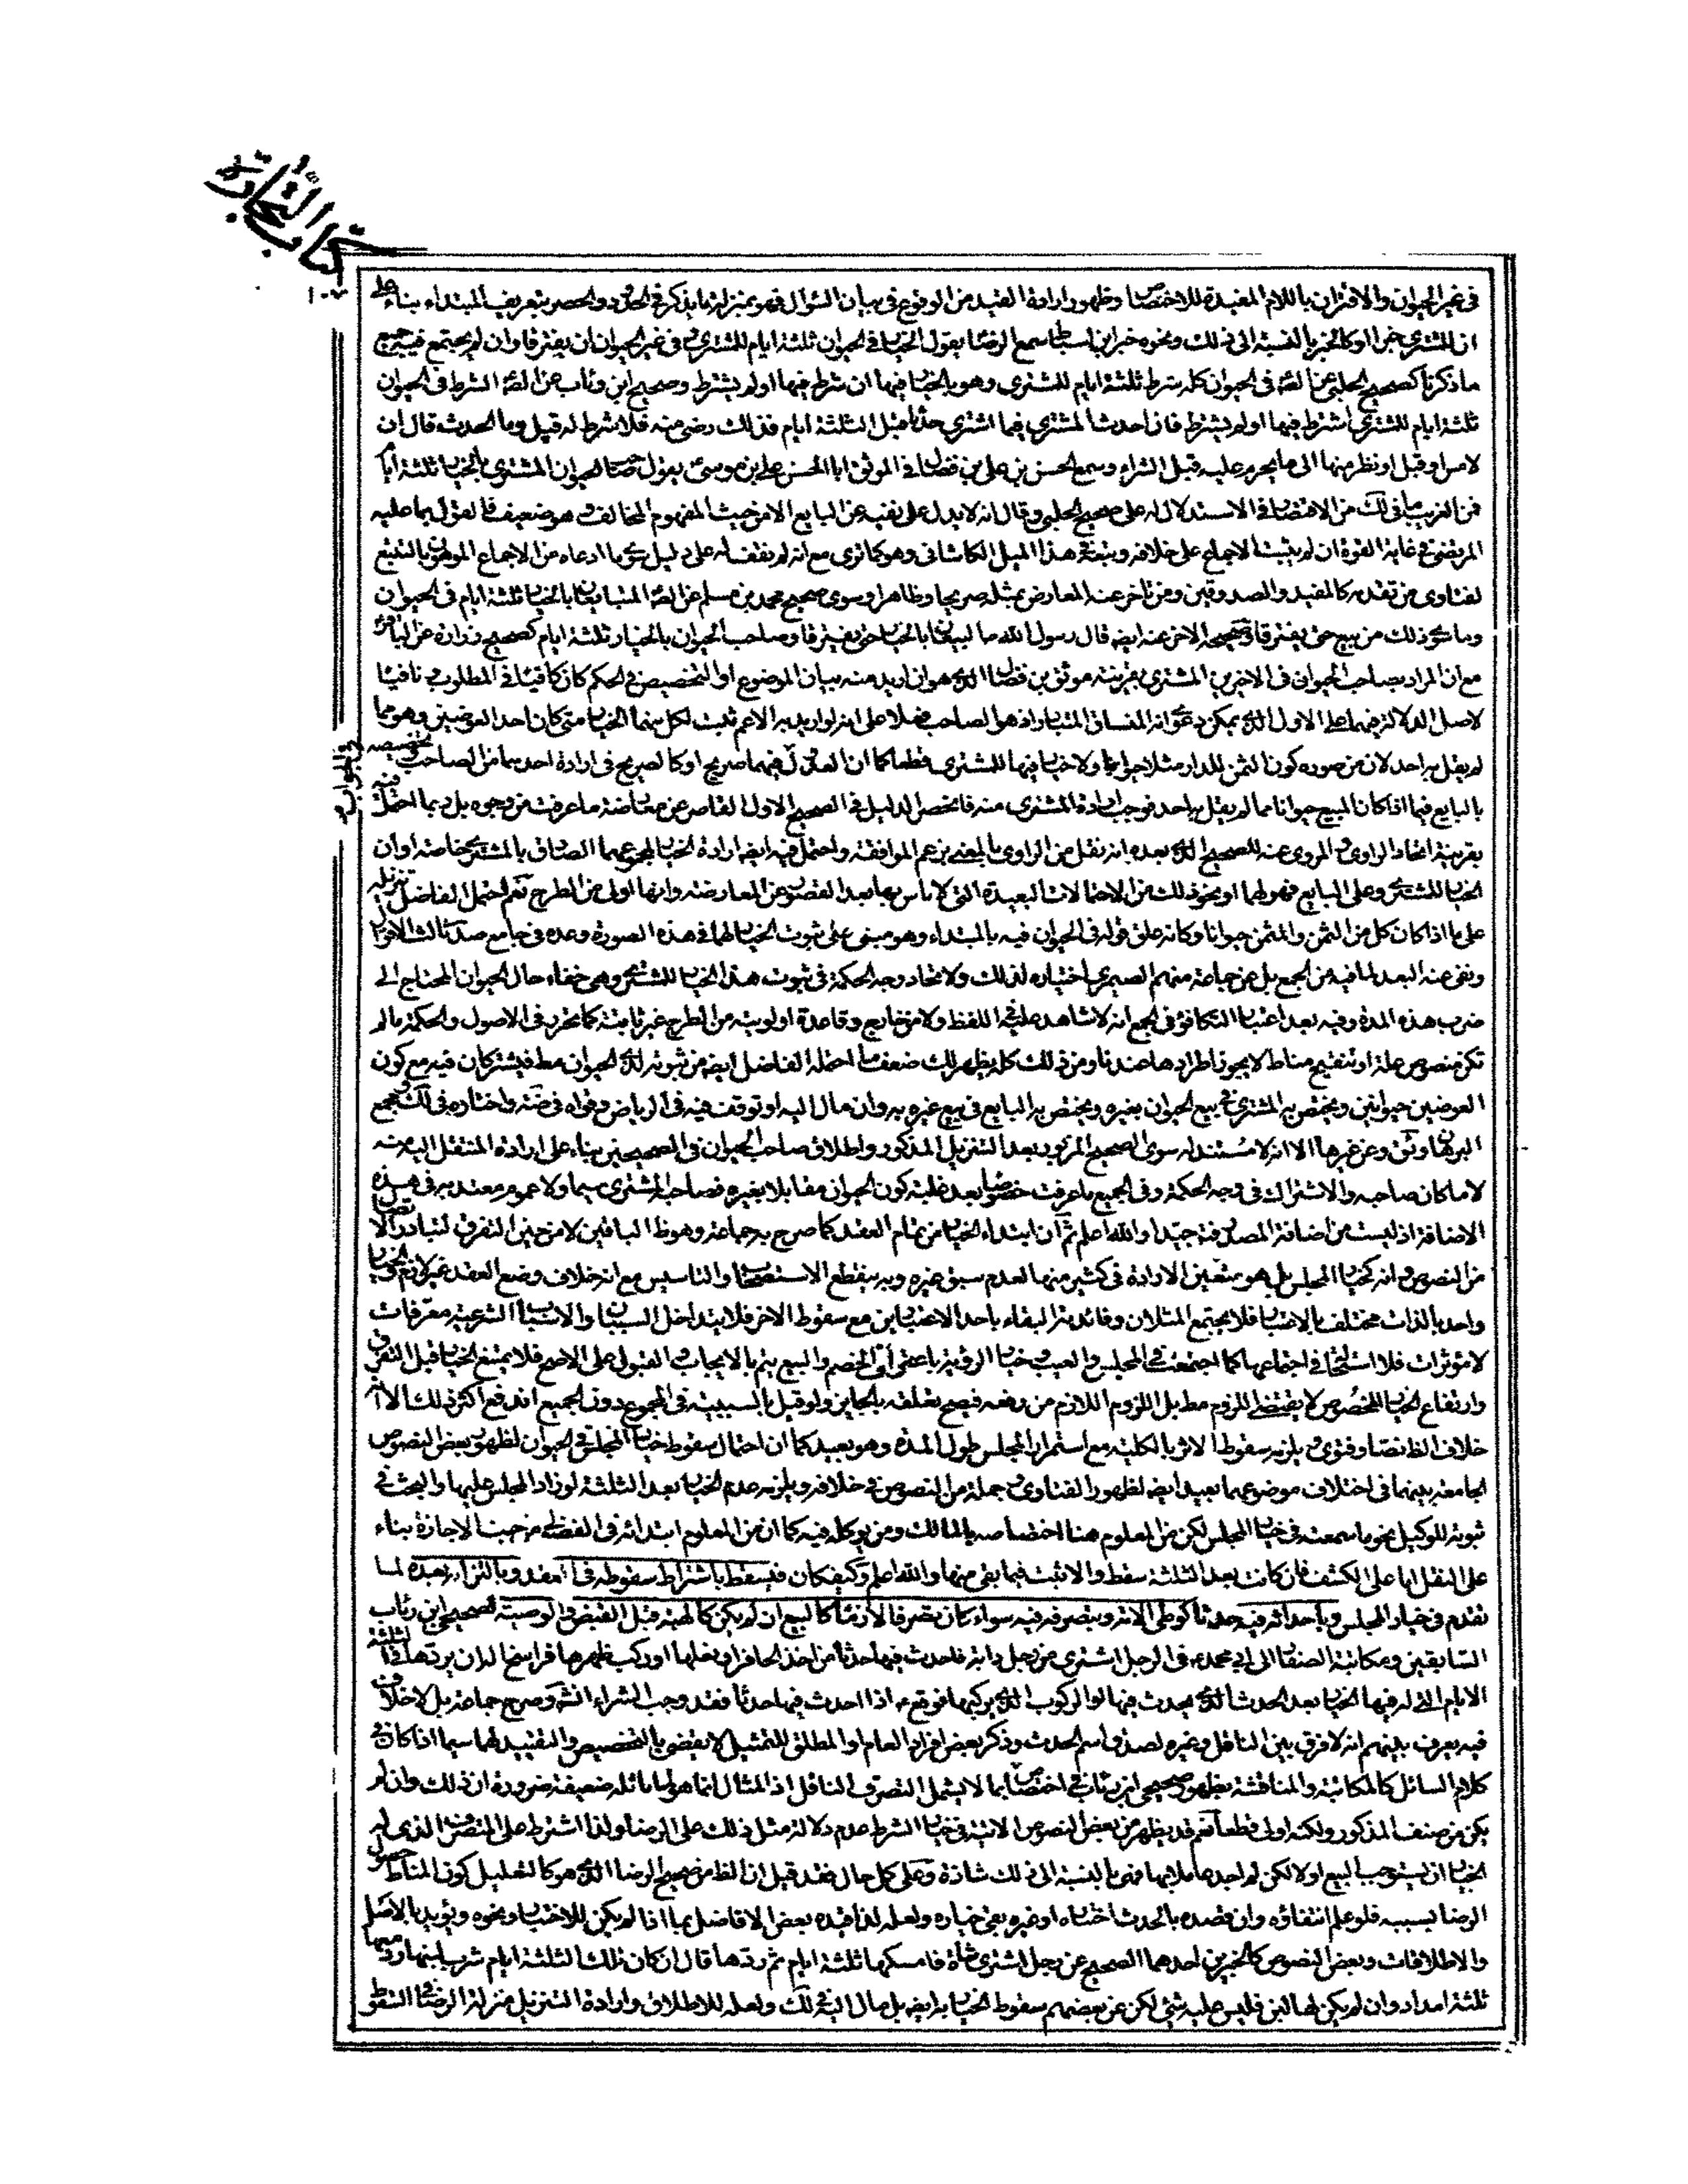 كتاب التجارة
١٠٧
في غير الحيوان والاقتران باللام المفيدة للاختصاص وظهور ارادة القيد من الوقوع في بيان السؤال فهو بمنزلة ما يذكر في الحدود والحصر بتعريف المبتداء بناء على
ان للمشتري خبر او كالخبر بالنسبة الى ذلك ونحوه خبر ابن اسباط سمع الرضا يقول الخيار في الحيوان ثلثة ايام للمشتري وفي غير الحيوان ان يفترقا وان لم يجتمع فيه جميع
ما ذكرنا كصحيح الحلبي عن الصّ في الحيوان كله شرط ثلثة ايام للمشتري وهو بالخيار فيها ان شرط فيها او لم يشترط وصحيح ابن رئاب عن الصّ الشرط في الحيوان
ثلثة ايام للمشتري اشترط فيها او لم يشترط فان احدث المشتري فيما اشترى حدثا قبل الثلثة ايام فذلك رضى منه فلا شرط له قيل وما الحدث قال ان
لامس او قبل او نظر منها الى ما يحرم عليه قبل الشراء وسمع الحسن بن علي بن فضال في الموثق ابا الحسن علي بن موسى يقول صاحب الحيوان المشتري بالخيار ثلثة ايام
فمن الغريب ما في لك من الاختصار في الاستدلال له على صحيح الحلبي وقال انه لا يدل على نفيه عن البايع الا من حيث المفهوم المخالف وهو ضعيف فالقول بما عليه
المرتضى في غاية القوة ان لم يثبت الاجماع على خلافه وتبعه في هذا الميل الكاشاني وهو كما ترى مع انه لم نقف له على دليل سوى ما ادعاه من الاجماع الموهون بالتتبع
لفتاوى من تقدمه كالمفيد والصدوقين ومن تاخر عنه المعارض بمثله صريحا وظاهرا وسوى صحيح محمد بن مسلم عن الصّ المتبايعان بالخيار ثلثة ايام في الحيوان
وما سوى ذلك من بيع حتى يفترقا وصحيحه الاخر عنه ايضا قال رسول الله ص البيعان بالخيار حتى يفترقا وصاحب الحيوان بالخيار ثلثة ايام كصحيح زرارة عن الباقر
مع ان المراد بصاحب الحيوان في الاخيرين المشتري بقرينة موثق بن فضال الذي هو ان اريد منه بيان الموضوع او التخصيص في الحكم كان كافيا في المطلوب نافيا
لاصل الدلالة فيهما على الاول الذي يمكن دعوى انه المنساق المتبادر اذ هو الصاحب فضلا على انه لو اريد به الاعم ثبت لكل منهما الخيار متى كان احد العوضين وهو مما
لم يقل به احد لان من صوره كون الثمن للدار مثلا حيوانا ولا خيار فيها للمشتري قطعا كما ان العدول فيهما صريح او كالصريح في ارادة احدهما من الصاحب تخصيصه
في الحيوان
بالبايع فيما اذا كان المبيع حيوانا مما لم يقل به احد فوجب ارادة المشتري منه فانحصر الدليل في الصحيح الاول القاصر عن معارضة ما عرفت من وجوه بل ربما احتمل فيه
بقرينة اتحاد الراوي والمروي عنه للصحيح الذي بعده انه نقل من الراوي بالمعنى بزعم الموافقة واحتمل فيه ايضا ارادة الخيار لمجموعهما الصادق بالمشتري خاصة او ان
الخيار للمشتري وعلى البايع فهو لهما او نحو ذلك من الاحتمالات البعيدة التي لا باس بها بعد القصور عن المعارضة وانها اولى من الطرح نعم احتمل الفاضل تنزيله
على ما اذا كان كل من الثمن والمثمن حيوانا وكانه علق قوله في الحيوان فيه بالمبتداء وهو مبني على ثبوت الخيار لهما في هذه الصورة وعده في جامع صد ثالث الاقوال
ونفى عنه البعد لما فيه من الجمع بل عن جماعة منهم الصيمري اختياره لذلك ولاتحاد وجه الحكمة في ثبوت هذا الخيار للمشتري وهي خفاء حال الحيوان المحتاج الى
ضرب هذه المدة وفيه بعد اعتبار التكافؤ في الجمع انه لا شاهد عليه في اللفظ ولا من خارج وقاعدة اولويته من الطرح غير ثابتة كما تحرر في الاصول والحكمة ما لم
تكن منصوص علة او تنقيح مناط لا يجوز اطرادها عندنا ومن ذلك كله يظهر لك ضعف ما احتمله الفاضل ايضا من ثبوته لذي الحيوان مط فيشتركان فيه مع كون
العوضين حيوانين ويختص به المشتري في بيع الحيوان بغيره ويختص به البايع في بيع غيره به وان مال اليه او توقف فيه في الرياض وقواه في ضة واختاره في لك ومجمع
البرهان وثق وعن غيرها الا انه لا مستند له سوى الصحيح المزبور بعد التنزيل المذكور واطلاق صاحب الحيوان في الصحيحين بناء على ارادة المنتقل اليه منه
لا ما كان صاحبه والاشتراك في وجه الحكمة وفي الجميع ما عرفت خصوصا بعد غلبة كون الحيوان مقابلا بغيره فصاحبه المشتري سيما ولا عموم معتد به في هذه
الاضافة اذ ليست من اضافة المصدر فتد جيدا والله اعلم ثم ان ابتداء الخيار من تمام العقد كما صرح به جماعة وهو ظ الباقين لا من حين التفرق لتبادر الاتصال
من النصوص وانه كخيار المجلس بل هو متعين الارادة في كثير منها لعدم سبق غيره وبه ينقطع الاستصحاب والتاسيس مع انه خلاف وضع العقد غير لازم والخيار
واحد بالذات مختلف بالاعتبار فلا يجتمع المثلان وفائدته البقاء باحد الاعتبارين مع سقوط الاخر فلا يتداخل السببان والاسباب الشرعية معرفات
لا مؤثرات فلا استحالة في اجتماعها كما اجتمعت في المجلس والعيب وخيار الرؤية باعتراف الخصم والبيع يتم بالايجاب والقبول على الاصح فلا يمتنع الخيار قبل التفرق
وارتفاع الخيار المخصوص لا يقتضي اللزوم مط بل اللزوم اللازم من رفعه فيصح تعلقه بالجايز ولو قيل بالسببية في المجموع دون الجميع اندفع اكثر ذلك الا انه
خلاف الظ نصا وفتوى ويلزمه سقوط الاثر بالكلية مع استمرار المجلس طول المدة وهو بعيد كما ان احتمال سقوط خيار المجلس في الحيوان لظهور بعض النصوص
الجامعة بينهما في اختلاف موضوعهما بعيد ايضا لظهور الفتاوى وجملة من النصوص في خلافه ويلزمه عدم الخيار بعد الثلثة لو زاد المجلس عليها والبحث في
ثبوته للوكيل نحو ما سمعته في خيار المجلس لكن من المعلوم هنا اختصاصه بالمالك ومن يوكله فيه كما ان من المعلوم ابتدائه في الفضولي من حين الاجازة بناء
على النقل اما على الكشف فان كانت بعد الثلثة سقط والا ثبت فيما بقي منها والله اعلم وكيف كان فيسقط باشتراط سقوطه في العقد وبالتزامه بعده لما
تقدم في خيار المجلس وباحداثه فيه حدثا كوطي الامة وبتصرفه فيه سواء كان تصرفا لازما كالبيع ان لم يكن كالهبة قبل القبض والوصية لصحيح ابن رئاب
السابقين ومكاتبة الصفار الى ابي محمد ع في الرجل اشترى من رجل دابة فاحدث فيها حدثا من اخذ الحافر او نعلها او ركب ظهرها فراسخ اله ان يردها في الثلثة
الايام التي له فيها الخيار بعد الحدث الذي يحدث فيها او الركوب الذي يركبها فوقع ع اذا احدث فيها حدثا فقد وجب الشراء انشّ وصرح جماعة بل لا خلاف
فيه يعرف بينهم انه لا فرق بين الناقل وغيره لصدق اسم الحدث وذكر بعض افراد العام او المطلق للتمثيل لا يقضي بالتخصيص والتقييد لهما سيما اذا كان في
كلام السائل كالمكاتبة والمناقشة بظهور صحيحي ابن رئاب في اختصاصها بما لا يشمل التصرف الناقل اذ المثال انما هو لما ماثله ضعيفة ضرورة ان ذلك وان لم
يكن من صنف المذكور ولكنه اولى قطعا نعم قد يظهر من بعض النصوص الاتية في خيار الشرط عدم دلالة مثل ذلك على الرضا ولذا اشترط على المتصرف الذي له
الخيار ان يستوجب البيع اولا لكن لم اجد عاملا بها فهي بالنسبة الى ذلك شاذة وعلى كل حال فقد قيل ان الظ من صحيح الرضا الذي هو كالتعليل كون المناط حصول
الرضا بسببه فلو علم انتفاؤه وان قصده بالحدث اختباره او غيره بقي خياره ولعله لذا قيده بعض الافاضل بما اذا لم يكن للاختبار ونحوه ويؤيد بالاصل
والاطلاقات وبعض النصوص كالخبرين احدهما الصحيح عن رجل اشترى شاة فامسكها ثلثة ايام ثم ردها قال ان كان تلك الثلثة ايام شرب لبنها رد معها
ثلثة امداد وان لم يكن لها لبن فليس عليه شئ لكن عن بعضهم سقوط الخيار به ايضا بل مال اليه في لك ولعله للاطلاق وارادة التنزيل منزلة الرضا في السقوط